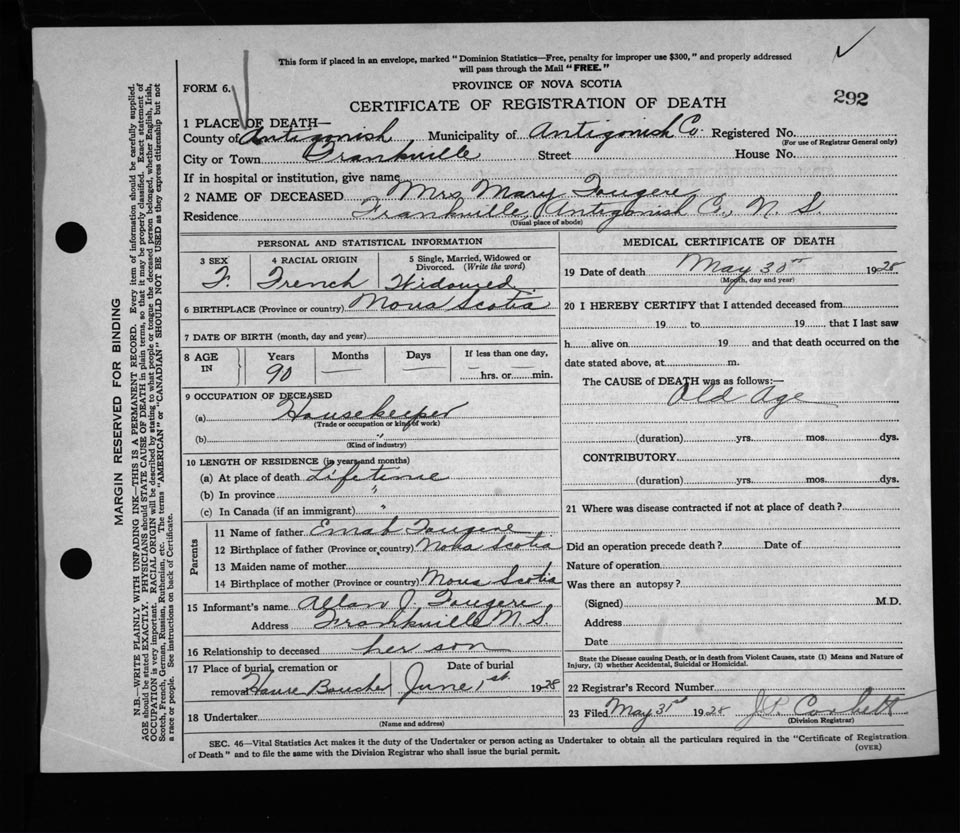 This form if placed in an envelope, marked "Dominion Statistics—Free, penalty for improper use $300," and properly addressed
will pass through the Mail "FREE."
FORM 6.
PROVINCE OF NOVA SCOTIA
CERTIFICATE OF REGISTRATION OF DEATH
292
1 PLACE OF DEATH—
County of Antigonish Municipality of Antigonish Co. Registered No.
(For use of Registrar General only)
City or Town Frankville Street House No.
If in hospital or institution, give name
2 NAME OF DECEASED Mrs Mary Fougere
Residence Frankville, Antigonish Co., N. S.
(Usual place of abode)
PERSONAL AND STATISTICAL INFORMATION
3 SEX F. 4 RACIAL ORIGIN French 5 Single, Married, Widowed or Divorced. (Write the word) Widowed
6 BIRTHPLACE (Province or country) Nova Scotia
7 DATE OF BIRTH (month, day and year)
8 AGE IN Years 90 Months — Days — If less than one day, — hrs. or — min.
9 OCCUPATION OF DECEASED
(a) Housekeeper
(Trade or occupation or kind of work)
(b) "
(Kind of industry)
10 LENGTH OF RESIDENCE (in years and months)
(a) At place of death Lifetime
(b) In province "
(c) In Canada (if an immigrant) "
Parents
11 Name of father Fougere
12 Birthplace of father (Province or country) Nova Scotia
13 Maiden name of mother
14 Birthplace of mother (Province or country) Nova Scotia
15 Informant's name Allan J. Fougere
Address Frankville N. S.
16 Relationship to deceased her son
17 Place of burial, cremation or Date of burial
removal Havre Boucher June 1st. 1928
18 Undertaker
(Name and address)
MEDICAL CERTIFICATE OF DEATH
19 Date of death May 30th 1928
(Month, day and year)
20 I HEREBY CERTIFY that I attended deceased from
19 to 19 that I last saw
h alive on 19 and that death occurred on the
date stated above, at m.
The CAUSE of DEATH was as follows:—
Old Age
(duration) yrs. mos. dys.
CONTRIBUTORY
(duration) yrs. mos. dys.
21 Where was disease contracted if not at place of death?
Did an operation precede death? Date of
Nature of operation
Was there an autopsy?
(Signed) M.D.
Address
Date
State the Disease causing Death, or in death from Violent Causes, state (1) Means and Nature of
Injury, (2) whether Accidental, Suicidal or Homicidal.
22 Registrar's Record Number
23 Filed May 31st 1928 J. P. Corbett
(Division Registrar)
SEC. 46—Vital Statistics Act makes it the duty of the Undertaker or person acting as Undertaker to obtain all the particulars required in the "Certificate of Registration
of Death" and to file the same with the Division Registrar who shall issue the burial permit.
(OVER)
MARGIN RESERVED FOR BINDING
N.B.—WRITE PLAINLY WITH UNFADING INK—THIS IS A PERMANENT RECORD. Every item of information should be carefully supplied.
AGE should be stated EXACTLY. PHYSICIANS should STATE CAUSE OF DEATH in plain terms, so that it may be properly classified. Exact statement of
OCCUPATION is very important. RACIAL ORIGIN will be described by stating to what people or tongue the deceased person belonged, whether English, Irish,
Scotch, French, German, Russian, Ruthenian, etc. The terms "AMERICAN" or "CANADIAN" SHOULD NOT BE USED as they express citizenship but not
a race or people. See instructions on back of Certificate.